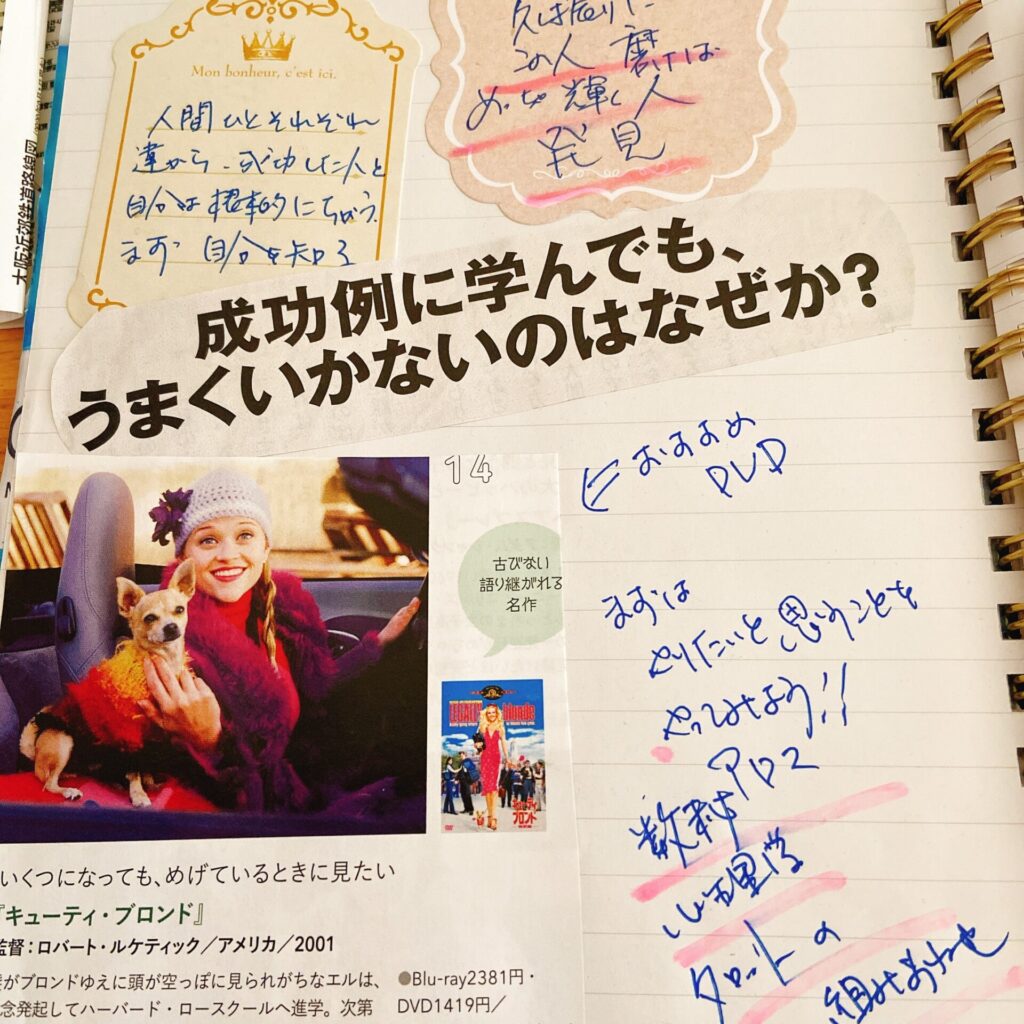 大阪近郊鉄道路線図
Mon bonheur, c'est ici.
人間ひとそれぞれ
違から、成功した人と
自分は根本的にちがう。
まず 自分を知る
久しぶりに
この人 磨けば
めっちゃ輝く人
発見
成功例に学んでも、
うまくいかないのはなぜか?
おすすめ
DVD
14
古びない
語り継がれる
名作
LEGALLY blonde
キューティ・
ブロンド
まずは
やりたいと思うことを
やってみよう!!
アロマ
数秘
心理学
タロットの
組みあわせ
いくつになっても、めげているときに見たい
『キューティ・ブロンド』
監督:ロバート・ルケティック/アメリカ/2001
がブロンドゆえに頭が空っぽに見られがちなエルは、
念発起してハーバード・ロースクールへ進学。次第
●Blu-ray2381円・
DVD1419円/